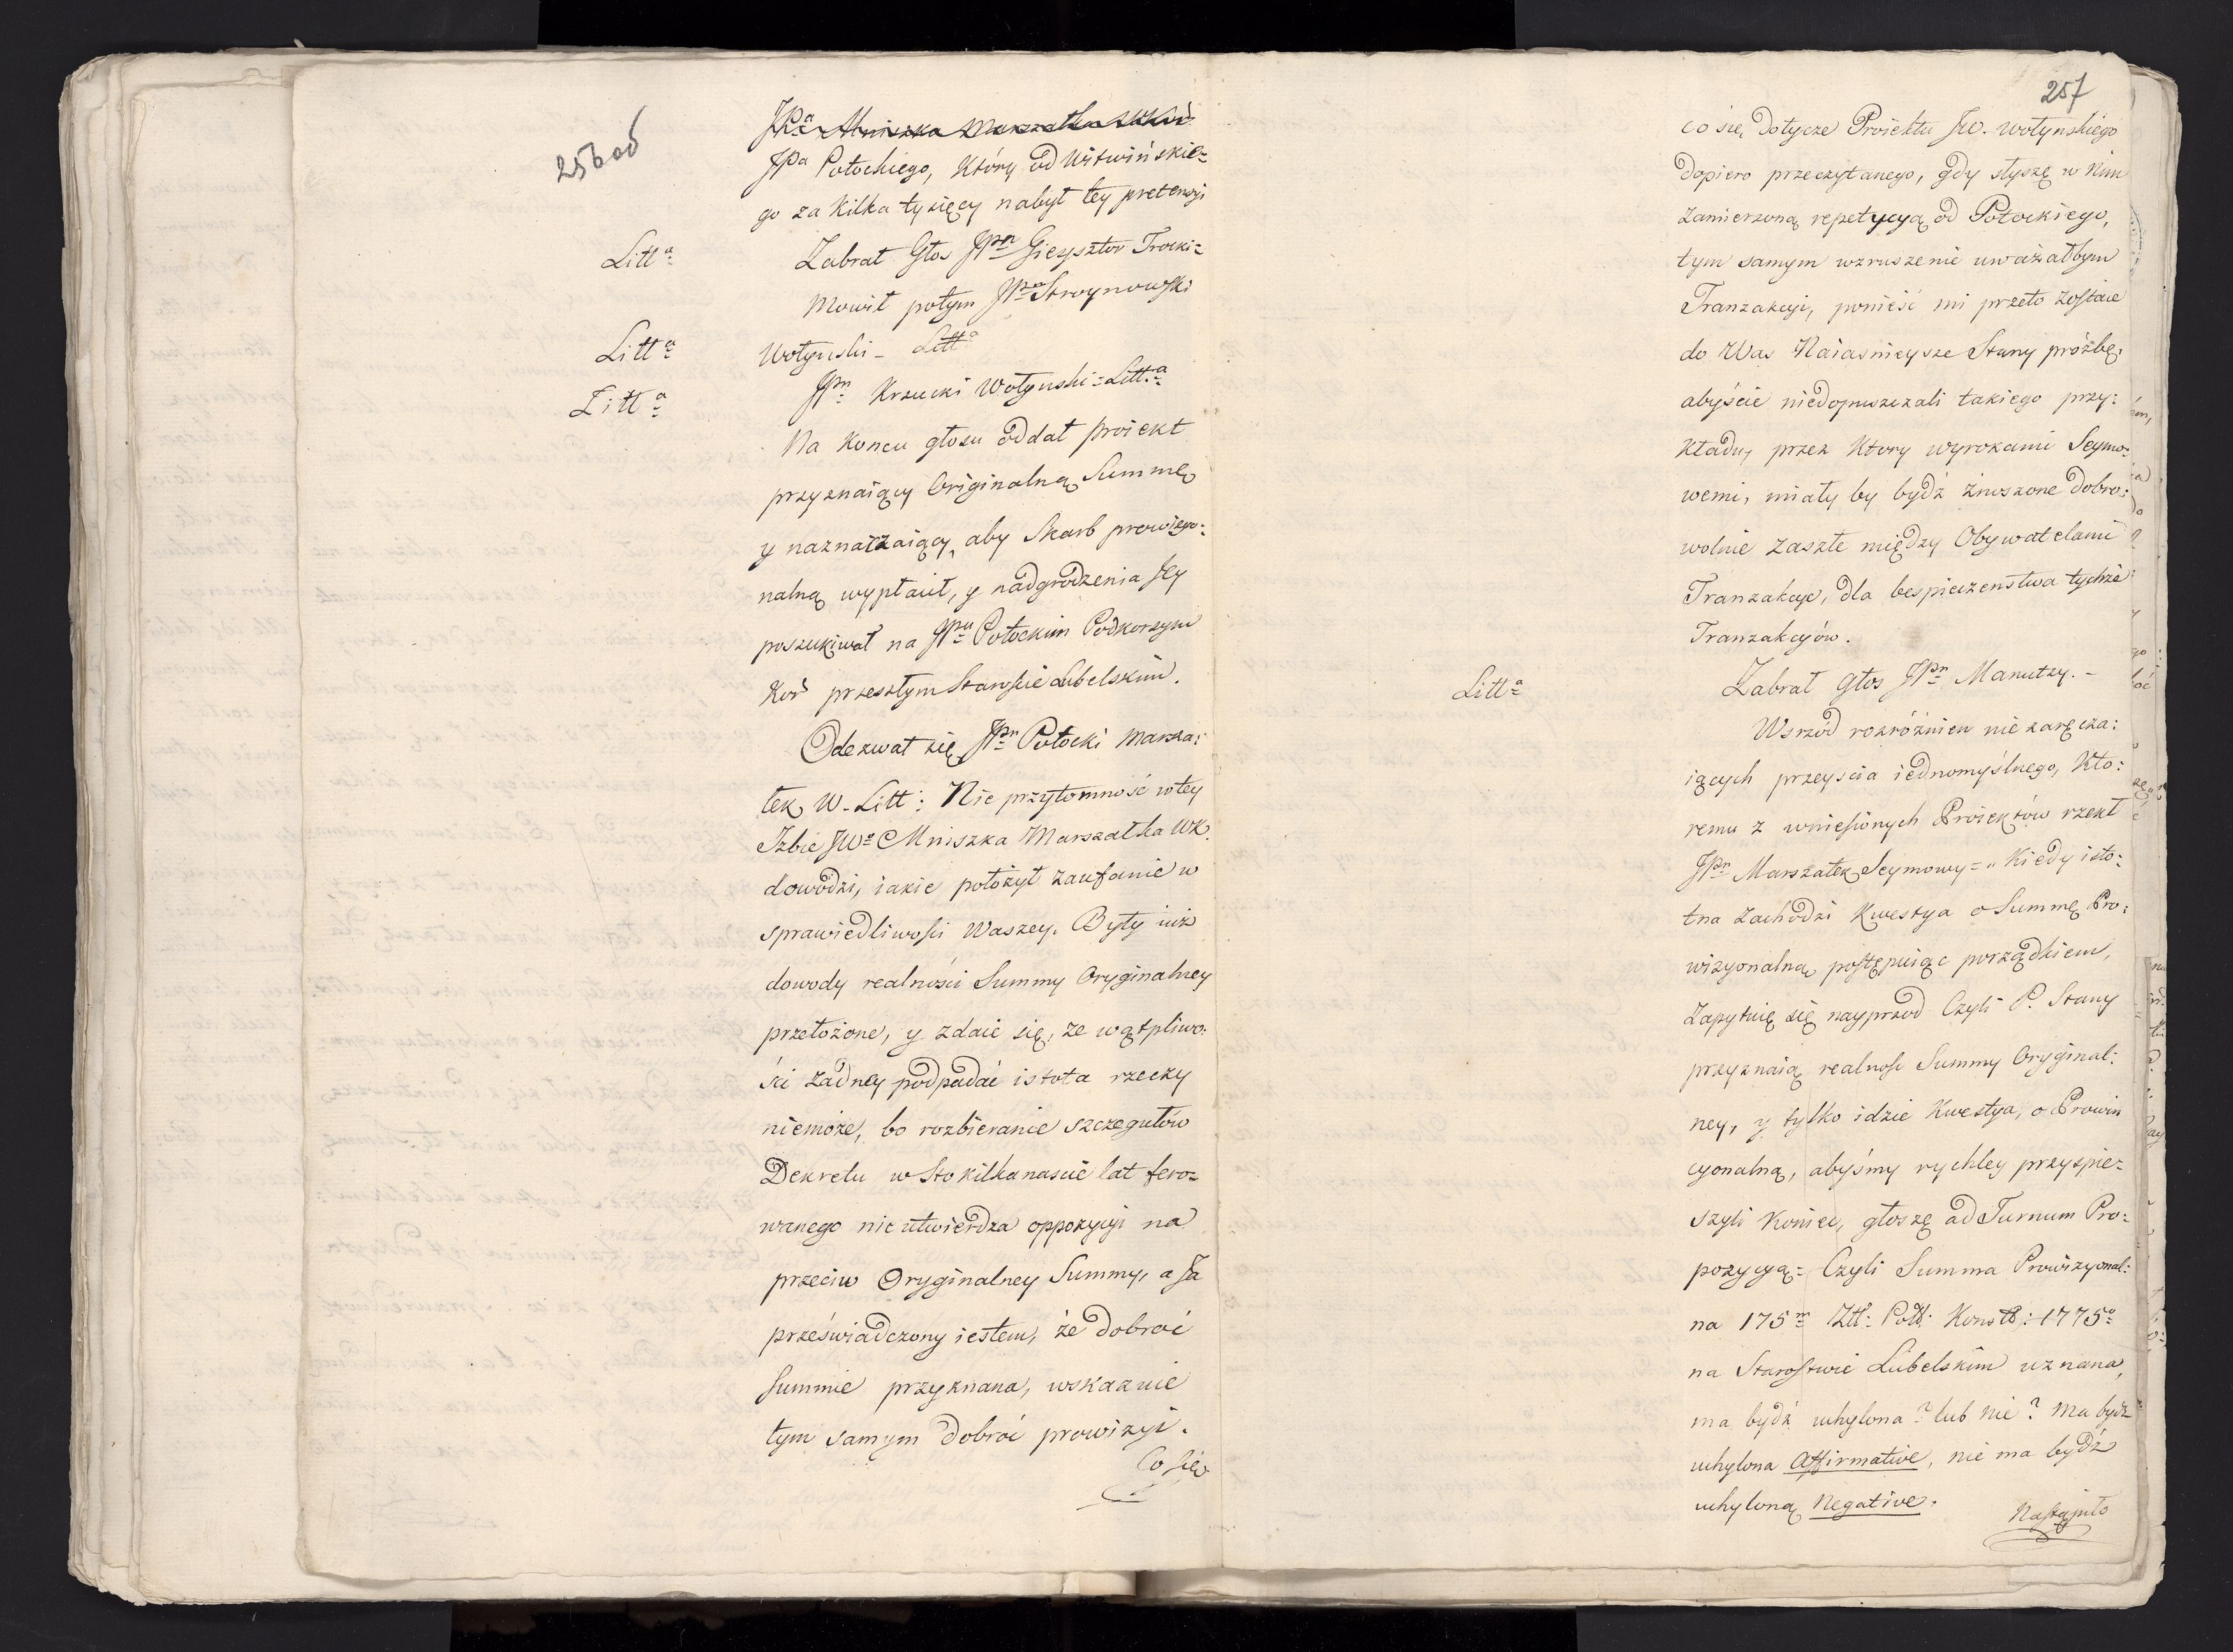 256 об
JPa Mniszka Marszałka WKor
JPa Potockiego, Który od Witwińskie=
go za Kilka tysięcy nabył tey pretensyi
Litta
Zabrał Głos JPn Gieysztor Trocki=
Mowił potym JPan Stroynowski
Litta
Wołyński – Litta
Litta
JPn Krzucki Wołyński = Litta
Na Koncu głosu oddał proiekt
przyznaiący Originalną Summę
y naznaczaiący, aby Skarb prowizyo:
nalną wypłacił, y nadgrodzenia Jey
poszukiwał na JPu Potockim Podkorzym
Kor przeszłym Starośćie Lubelskim.
Odezwał się JPn Potocki Marsza:
łek W. Litt: Nie przytomność w tey
Izbie JWo Mniszka Marszałka WK.
dowodzi, iakie położył zaufanie w
sprawiedliwości Waszey. Były iuż
dowody realności Summy Oryginalney
przełożone, y zdaie się, ze wątpliwo:
ści żadney podpadać istota rzeczy
niemoże, bo rozbieranie szczegułów
Dekretu w Sto kilkanaście lat fero=
wanego nie utwierdza oppozycyi na
przeciw Oryginalney Summy, a Ja
przeświadczony iestem, że dobroć
Summie przyznana, wskazuie
tym samym dobroć prowizyi.
Co się
257
co się dotycze Proiektu JW. Wołyńskiego
dopiero przeczytanego, gdy słyszę w Nim
zamierzoną repetycyą od Potockiego,
tym samym wzruszenie uważałbym
Tranzakcyi, ponieść mi przeto zostaie
do Was Naiasnieysze Stany próźbę,
abyście niedopuszczali takiego przy:
kładu, przez Ktory wyrokami Seymo:
wemi, miały by bydź znoszone dobro:
wolnie zaszłe między Obywatelami
Tranzakcye, dla bespieczenstwa tychże
Tranzakcyów.
Litta
Zabrał głos JPn Manutzy. –
Wsrzód rozróżnien nie zaręcza:
iących przeyscia iednomyślnego, Kto:
remu z wniesionych Proiektów rzekł
JPn Marszałek Seymowy = „ Kiedy isto:
tna zachodzi Kwestya o Summę Pro:
wizyonalną, postępuiąc porządkiem,
Zapytuię się nayprzod Czyli P. Stany
przyznaią realność Summy Oryginal:
ney, y tylko idzie Kwestya, o Prowin
cyonalną, abyśmy rychley przyspie=
szyli Koniec, głoszę ad Turnum Pro:
pozycyą = Czyli Summa Prowizyonal:
na 175m Złł: Poll: Konstt: 1775o
na Starostwie Lubelskim uznana,
ma bydź uchylona? lub nie? ma bydź
uchylona Affirmative, nie ma bydź
uchyloną Negative.
Nastąpiło